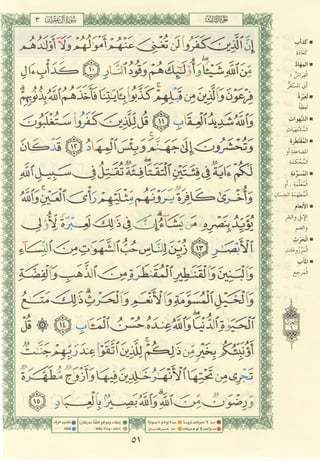 سُورَةُ آلِ عِمْرَانَ ٣
الجُزءُ الثَّالِثُ
إِنَّ ٱلَّذِينَ كَفَرُوا۟ لَن تُغْنِىَ عَنْهُمْ أَمْوَٰلُهُمْ وَلَآ أَوْلَٰدُهُم
مِّنَ ٱللَّهِ شَيْـًٔا وَأُو۟لَٰٓئِكَ هُمْ وَقُودُ ٱلنَّارِ ١٠ كَدَأْبِ ءَالِ
فِرْعَوْنَ وَٱلَّذِينَ مِن قَبْلِهِمْ كَذَّبُوا۟ بِـَٔايَٰتِنَا فَأَخَذَهُمُ ٱللَّهُ بِذُنُوبِهِمْ
وَٱللَّهُ شَدِيدُ ٱلْعِقَابِ ١١ قُل لِّلَّذِينَ كَفَرُوا۟ سَتُغْلَبُونَ
وَتُحْشَرُونَ إِلَىٰ جَهَنَّمَ وَبِئْسَ ٱلْمِهَادُ ١٢ قَدْ كَانَ
لَكُمْ ءَايَةٌ فِى فِئَتَيْنِ ٱلْتَقَتَا فِئَةٌ تُقَٰتِلُ فِى سَبِيلِ ٱللَّهِ
وَأُخْرَىٰ كَافِرَةٌ يَرَوْنَهُم مِّثْلَيْهِمْ رَأْىَ ٱلْعَيْنِ وَٱللَّهُ
يُؤَيِّدُ بِنَصْرِهِۦ مَن يَشَآءُ إِنَّ فِى ذَٰلِكَ لَعِبْرَةً لِّأُو۟لِى
ٱلْأَبْصَٰرِ ١٣ زُيِّنَ لِلنَّاسِ حُبُّ ٱلشَّهَوَٰتِ مِنَ ٱلنِّسَآءِ
وَٱلْبَنِينَ وَٱلْقَنَٰطِيرِ ٱلْمُقَنطَرَةِ مِنَ ٱلذَّهَبِ وَٱلْفِضَّةِ
وَٱلْخَيْلِ ٱلْمُسَوَّمَةِ وَٱلْأَنْعَٰمِ وَٱلْحَرْثِ ذَٰلِكَ مَتَٰعُ
ٱلْحَيَوٰةِ ٱلدُّنْيَا وَٱللَّهُ عِندَهُۥ حُسْنُ ٱلْمَـَٔابِ ١٤ ۞ قُلْ
أَؤُنَبِّئُكُم بِخَيْرٍ مِّن ذَٰلِكُمْ لِلَّذِينَ ٱتَّقَوْا۟ عِندَ رَبِّهِمْ جَنَّٰتٌ
تَجْرِى مِن تَحْتِهَا ٱلْأَنْهَٰرُ خَٰلِدِينَ فِيهَا وَأَزْوَٰجٌ مُّطَهَّرَةٌ
وَرِضْوَٰنٌ مِّنَ ٱللَّهِ وَٱللَّهُ بَصِيرٌۢ بِٱلْعِبَادِ ١٥
٥١
كَدَأْبِ
كَعَادَةِ
المِهَادُ
لَعِبْرَةً
الشَّهَوَاتِ
المُقَنْطَرَةِ
المُسَوَّمَةِ
الأَنْعَامِ
الحَرْثِ
المَآبِ
المَرْجِعِ